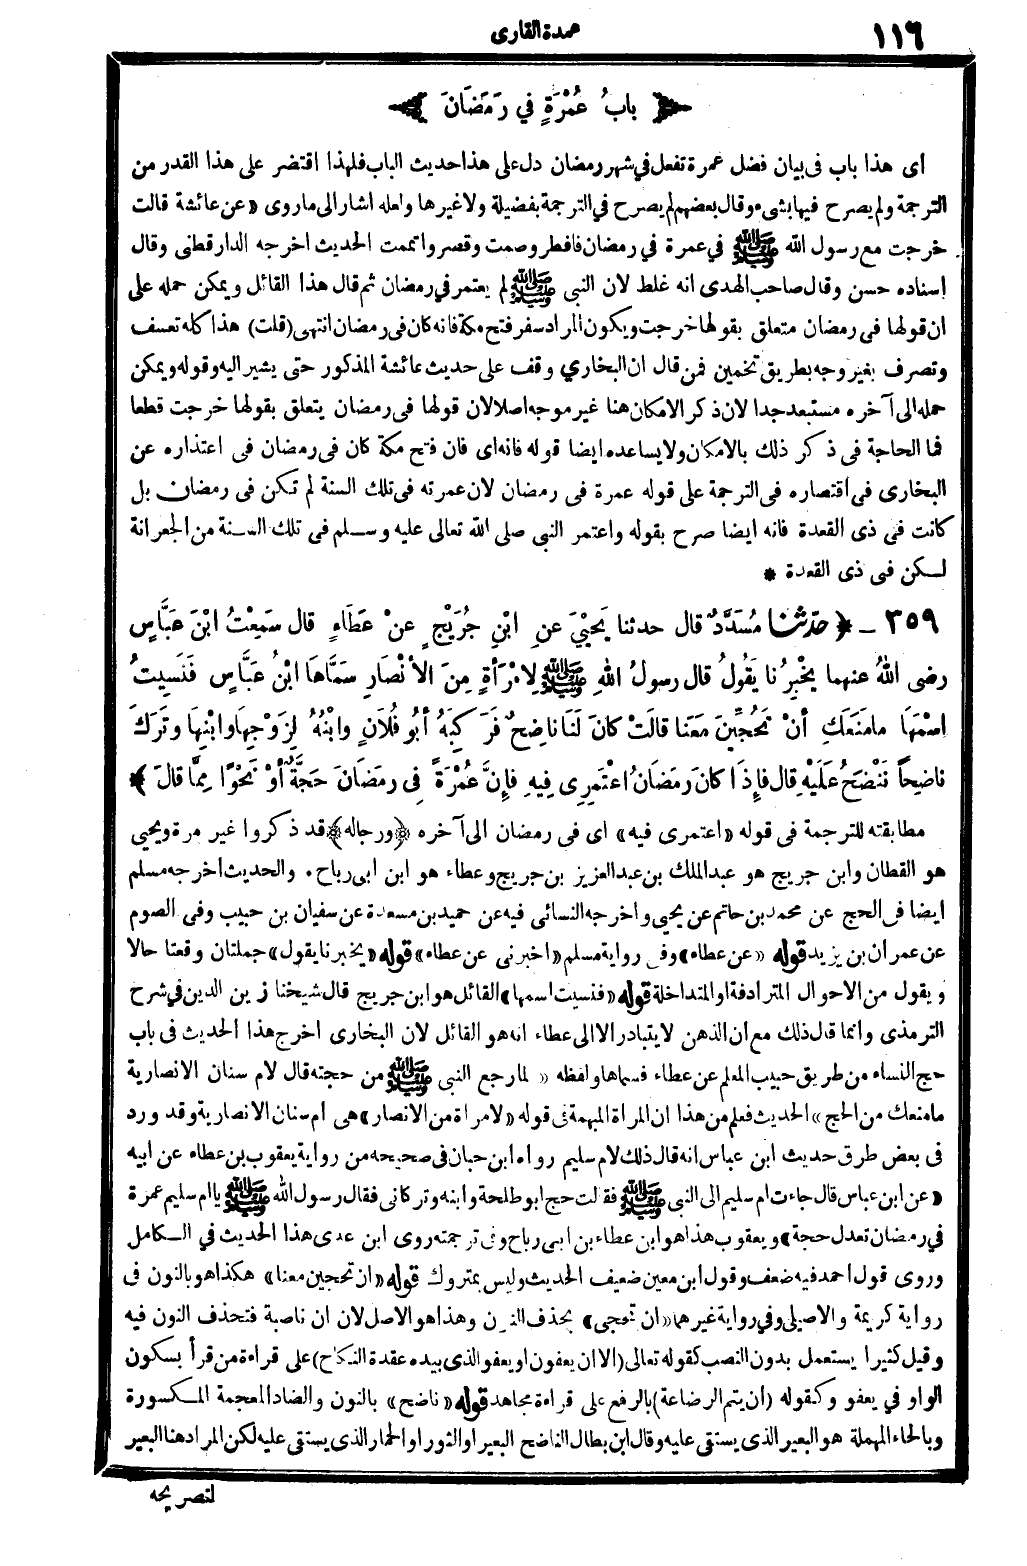 ١١٦
عمدة القارى
﴿ بابُ عُمْرَةٍ فِي رَمَضَانَ ﴾
اى هذا باب فى بيان فضل عمرة تفعل في شهر رمضان دل على هذا حديث الباب فلهذا اقتضر على هذا القدر من
الترجمة ولم يصرح فيها بشىء وقال بعضهم لم يصرح في الترجمة بفضيلة ولا غيرها ولعله اشار الى ما روى «عن عائشة قالت
خرجت مع رسول الله ﷺ في عمرة في رمضان فافطر وصمت وقصر واتممت الحديث اخرجه الدارقطنى وقال
اسناده حسن وقال صاحب الهدى انه غلط لان النبى ﷺ لم يعتمر في رمضان ثم قال هذا القائل ويمكن حمله على
ان قولها فى رمضان متعلق بقولها خرجت ويكون المراد سفر فتح مكة فانه كان فى رمضان انتهى (قلت) هذا كله تعسف
وتصرف بغير وجه بطريق تخمين فمن قال ان البخارى وقف على حديث عائشة المذكور حتى يشير اليه وقوله ويمكن
حمله الى آخره مستبعد جدا لان ذكر الامكان هنا غير موجه اصلا لان قولها فى رمضان يتعلق بقولها خرجت قطعا
فما الحاجة فى ذكر ذلك بالامكان ولا يساعده ايضا قوله فانه اى فان فتح مكة كان فى رمضان فى اعتذاره عن
البخارى فى اقتصاره فى الترجمة على قوله عمرة فى رمضان لان عمرته فى تلك السنة لم تكن فى رمضان بل
كانت فى ذى القعدة فانه ايضا صرح بقوله واعتمر النبى صلى الله تعالى عليه وسلم فى تلك السنة من الجعرانة
لكن فى ذى القعدة *
٣٥٩ - ﴿ حدّثنا مُسَدَّدٌ قال حدثنا يَحْيَى عنِ ابْنِ جُرَيْجٍ عنْ عَطَاءٍ قال سَمِعْتُ ابْنَ عَبَّاسٍ
رضى اللهُ عنهما يُخْبِرُنا يَقُولُ قال رسولُ اللهِ ﷺ لِامْرَأةٍ مِنَ الأنْصَارِ سَمَّاهَا ابْنُ عَبَّاسٍ فَنَسِيتُ
اسْمَهَا مامَنَعَكِ أنْ تَحُجِّينَ مَعَنا قالَتْ كانَ لَنَا ناضِحٌ فَرَكِبَهُ أبُو فُلَانٍ وابْنُهُ لِزَوْجِهَا وابْنِهَا وتَرَكَ
ناضِحاً نَنْضَحُ عَلَيْهِ قال فإذَا كانَ رمَضَانُ اعْتَمِرِى فِيهِ فإنَّ عُمْرَةً فى رمَضَانَ حَجَّةٌ أوْ نَحْوًا مِمَّا قالَ ﴾
مطابقته للترجمة فى قوله «اعتمرى فيه» اى فى رمضان الى آخره ﴿ورجاله﴾ قد ذكروا غير مرة ويحيى
هو القطان وابن جريج هو عبد الملك بن عبد العزيز بن جريج وعطاء هو ابن ابى رباح . والحديث اخرجه مسلم
ايضا فى الحج عن محمد بن حاتم عن يحيى واخرجه النسائى فيه عن حميد بن مسعدة عن سفيان بن حبيب وفى الصوم
عن عمران بن يزيد قوله «عن عطاء» وفى رواية مسلم «اخبرنى عن عطاء» قوله «يخبرنا يقول» جملتان وقعتا حالا
ويقول من الاحوال المترادفة او المتداخلة قوله «فنسيت اسمها» القائل هو ابن جريج قال شيخنا زين الدين في شرح
الترمذى وانما قال ذلك مع ان الذهن لا يتبادر الا الى عطاء انه هو القائل لان البخارى اخرج هذا الحديث فى باب
حج النساء من طريق حبيب المعلم عن عطاء فسماها ولفظه «لما رجع النبى ﷺ من حجته قال لام سنان الانصارية
مامنعك من الحج» الحديث فعلم من هذا ان المراة المبهمة فى قوله «لامراة من الانصار» هى ام سنان الانصارية وقد ورد
فى بعض طرق حديث ابن عباس انه قال ذلك لام سليم رواه ابن حبان فى صحيحه من رواية يعقوب بن عطاء عن ابيه
«عن ابن عباس قال جاءت ام سليم الى النبى ﷺ فقالت حج ابو طلحة وابنه وتركانى فقال رسول الله ﷺ يا ام سليم عمرة
في رمضان تعدل حجة» ويعقوب هذا هو ابن عطاء بن ابى رباح وفى ترجمته روى ابن عدى هذا الحديث في الكامل
وروى قول احمد فيه ضعف وقول ابن معين ضعيف الحديث وليس بمتروك قوله «ان تحجين معنا» هكذا هو بالنون فى
رواية كريمة والاصيلى وفي رواية غيرهما «ان تحجى» بحذف النون وهذا هو الاصل لان ان ناصبة فتحذف النون فيه
وقيل كثيرا يستعمل بدون النصب كقوله تعالى (الا ان يعفون او يعفو الذى بيده عقدة النكاح) على قراءة من قرأ بسكون
الواو في يعفو وكقوله (ان يتم الرضاعة) بالرفع على قراءة مجاهد قوله «ناضح» بالنون والضاد المعجمة المكسورة
وبالحاء المهملة هو البعير الذى يستقى عليه وقال ابن بطال الناضح البعير او الثور او الحمار الذى يستقى عليه لكن المراد هنا البعير
لتصريحه